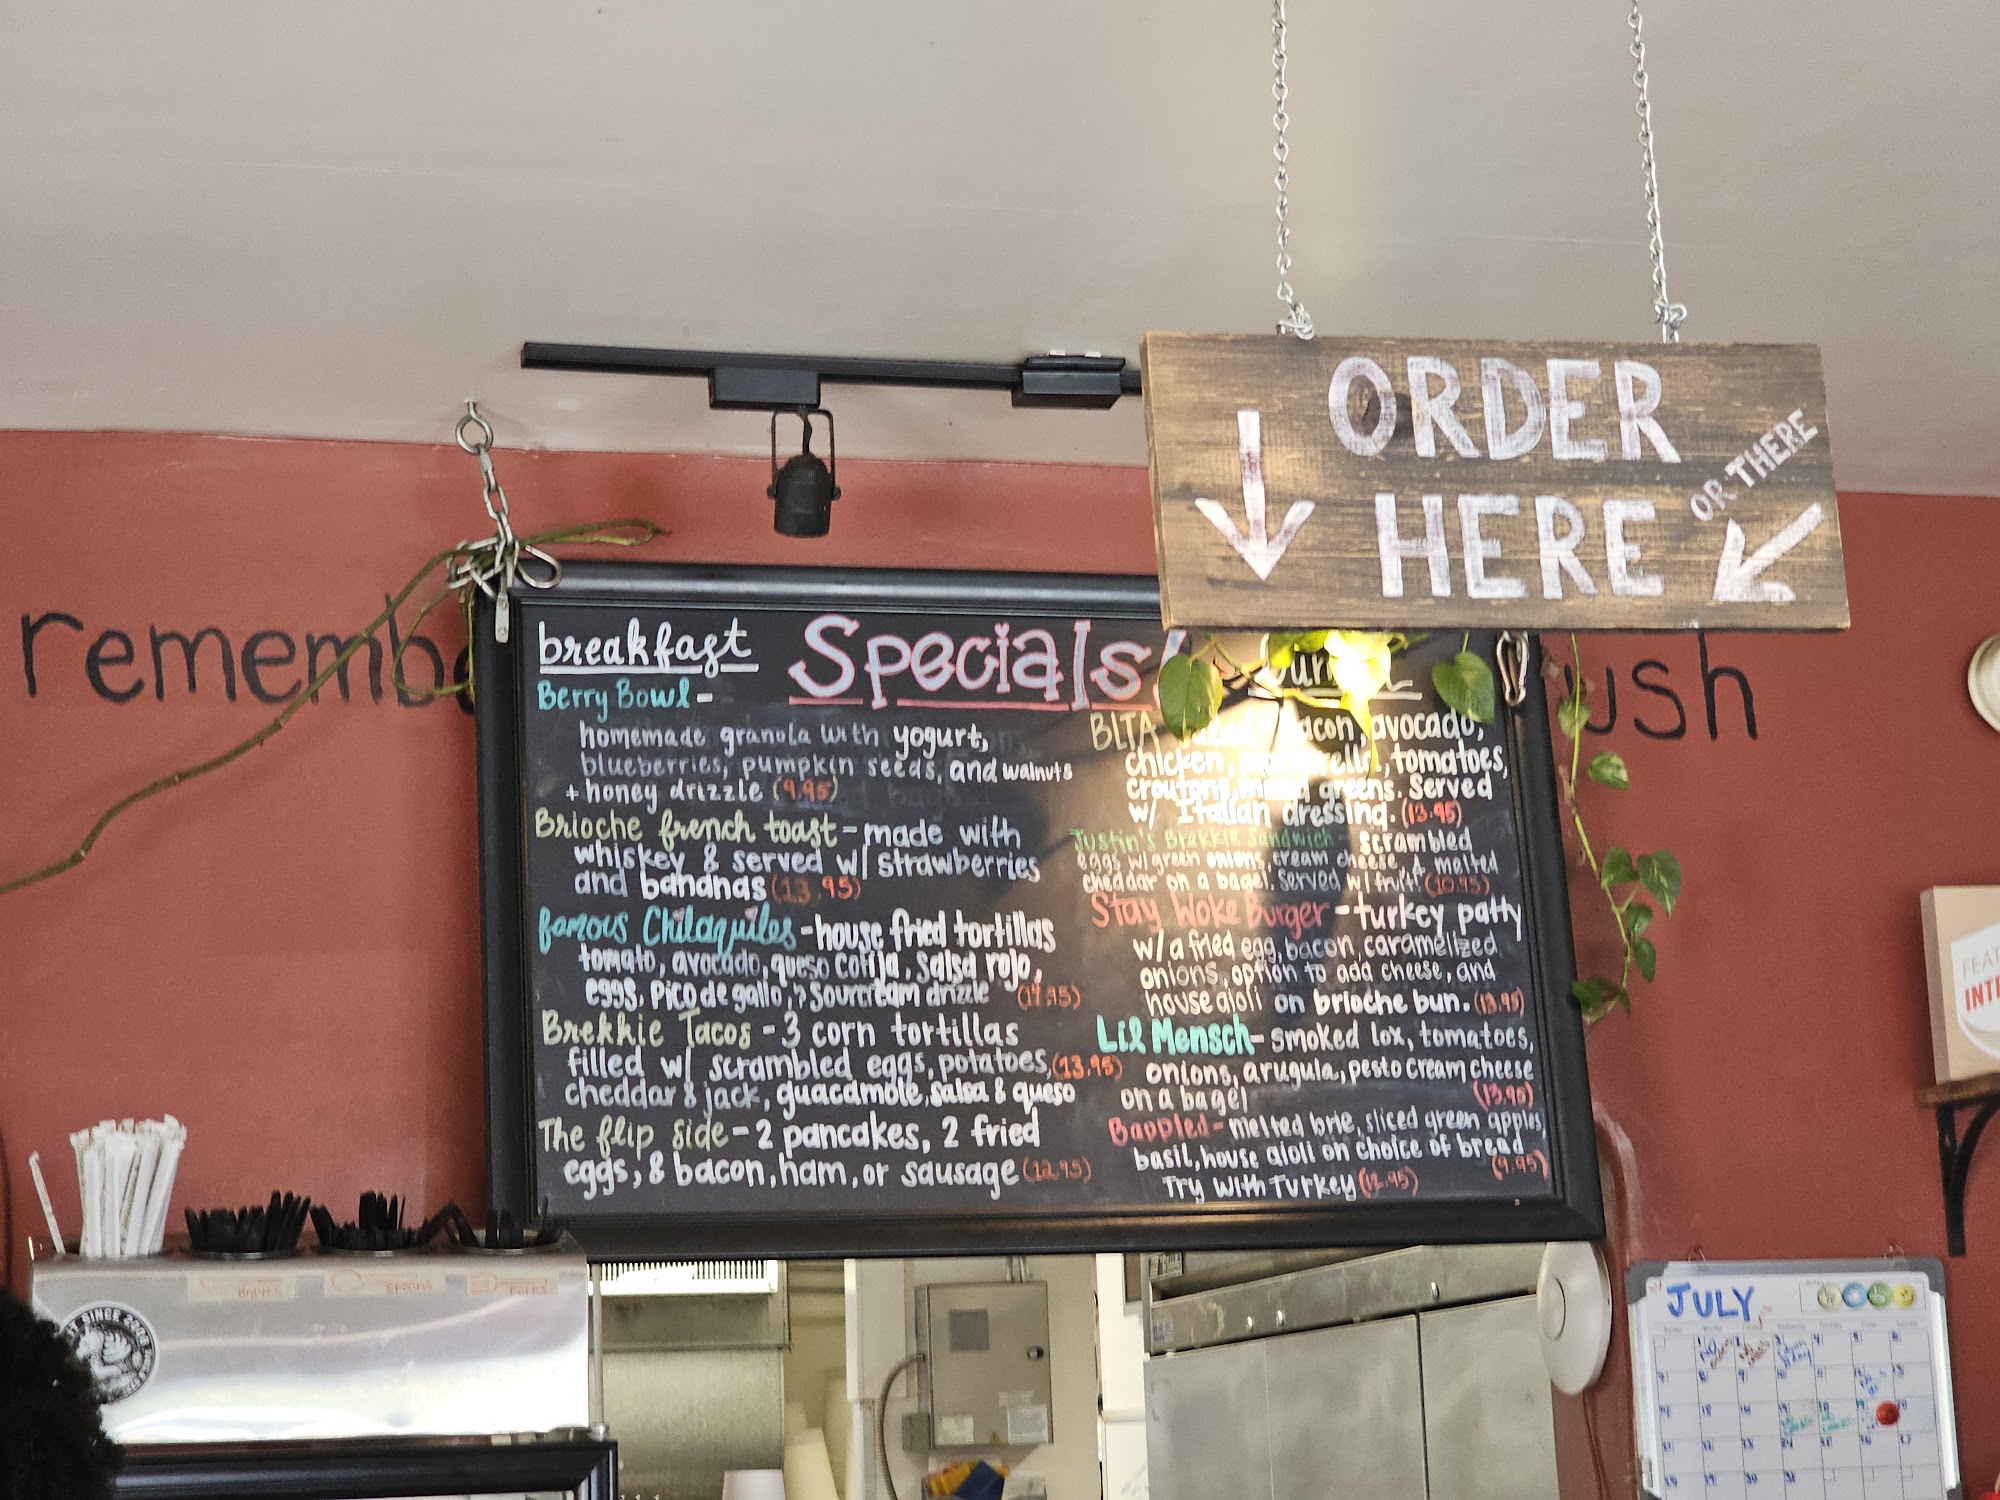 ORDER
HERE
OR THERE
rememb
ush
breakfast
Specials!
Berry Bowl -
homemade granola with yogurt,
blueberries, pumpkin seeds, and walnuts
+ honey drizzle (9.95)
Brioche french toast - made with
whiskey & served w/ strawberries
and bananas (13.95)
famous Chilaquiles - house fried tortillas
tomato, avocado, queso cotija, salsa rojo,
eggs, pico de gallo, & sourcream drizzle
Brekkie Tacos - 3 corn tortillas
filled w/ scrambled eggs, potatoes, (13.95)
cheddar & jack, guacamole, salsa & queso
The flip side - 2 pancakes, 2 fried
eggs, & bacon, ham, or sausage (12.95)
BLTA
bacon, avocado,
chicken, mozzarella, tomatoes,
croutons, mixed greens. Served
w/ Italian dressing. (13.95)
Justin's Brekkie Sandwich - scrambled
eggs w/ green onions, cream cheese, & melted
cheddar on a bagel. Served w/ fruit! (10.95)
Stay Woke Burger - turkey patty
w/ a fried egg, bacon, caramelized
onions, option to add cheese, and
house aioli on brioche bun. (13.95)
Lil Mensch - smoked lox, tomatoes,
onions, arugula, pesto cream cheese
on a bagel (13.95)
Bappled - melted brie, sliced green apples,
basil, house aioli on choice of bread (9.95)
Try with Turkey (12.95)
knives
spoons
forks
SINCE 2008
FEAT
INTE
JULY